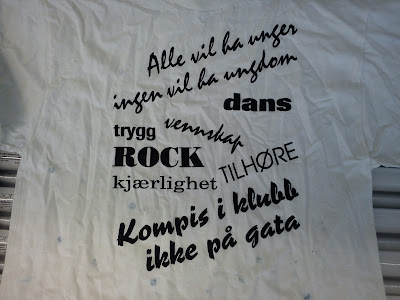 Alle vil ha unger
ingen vil ha ungdom
dans
trygg vennskap
ROCK TILHØRE
kjærlighet
Kompis i klubb
ikke på gata